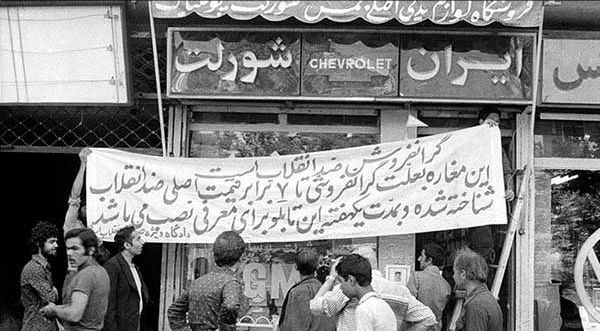 فروشگاه لوازم یدکی اصلی جمس شورلت
ایران CHEVROLET شورلت
گرانفروش ضد انقلاب است
این مغازه بعلت گرانفروشی تا ۷ برابر قیمت اصلی ضد انقلاب
شناخته شده و بمدت یکهفته این تابلو برای معرفی نصب می باشد
دادگاه ویژه
GM